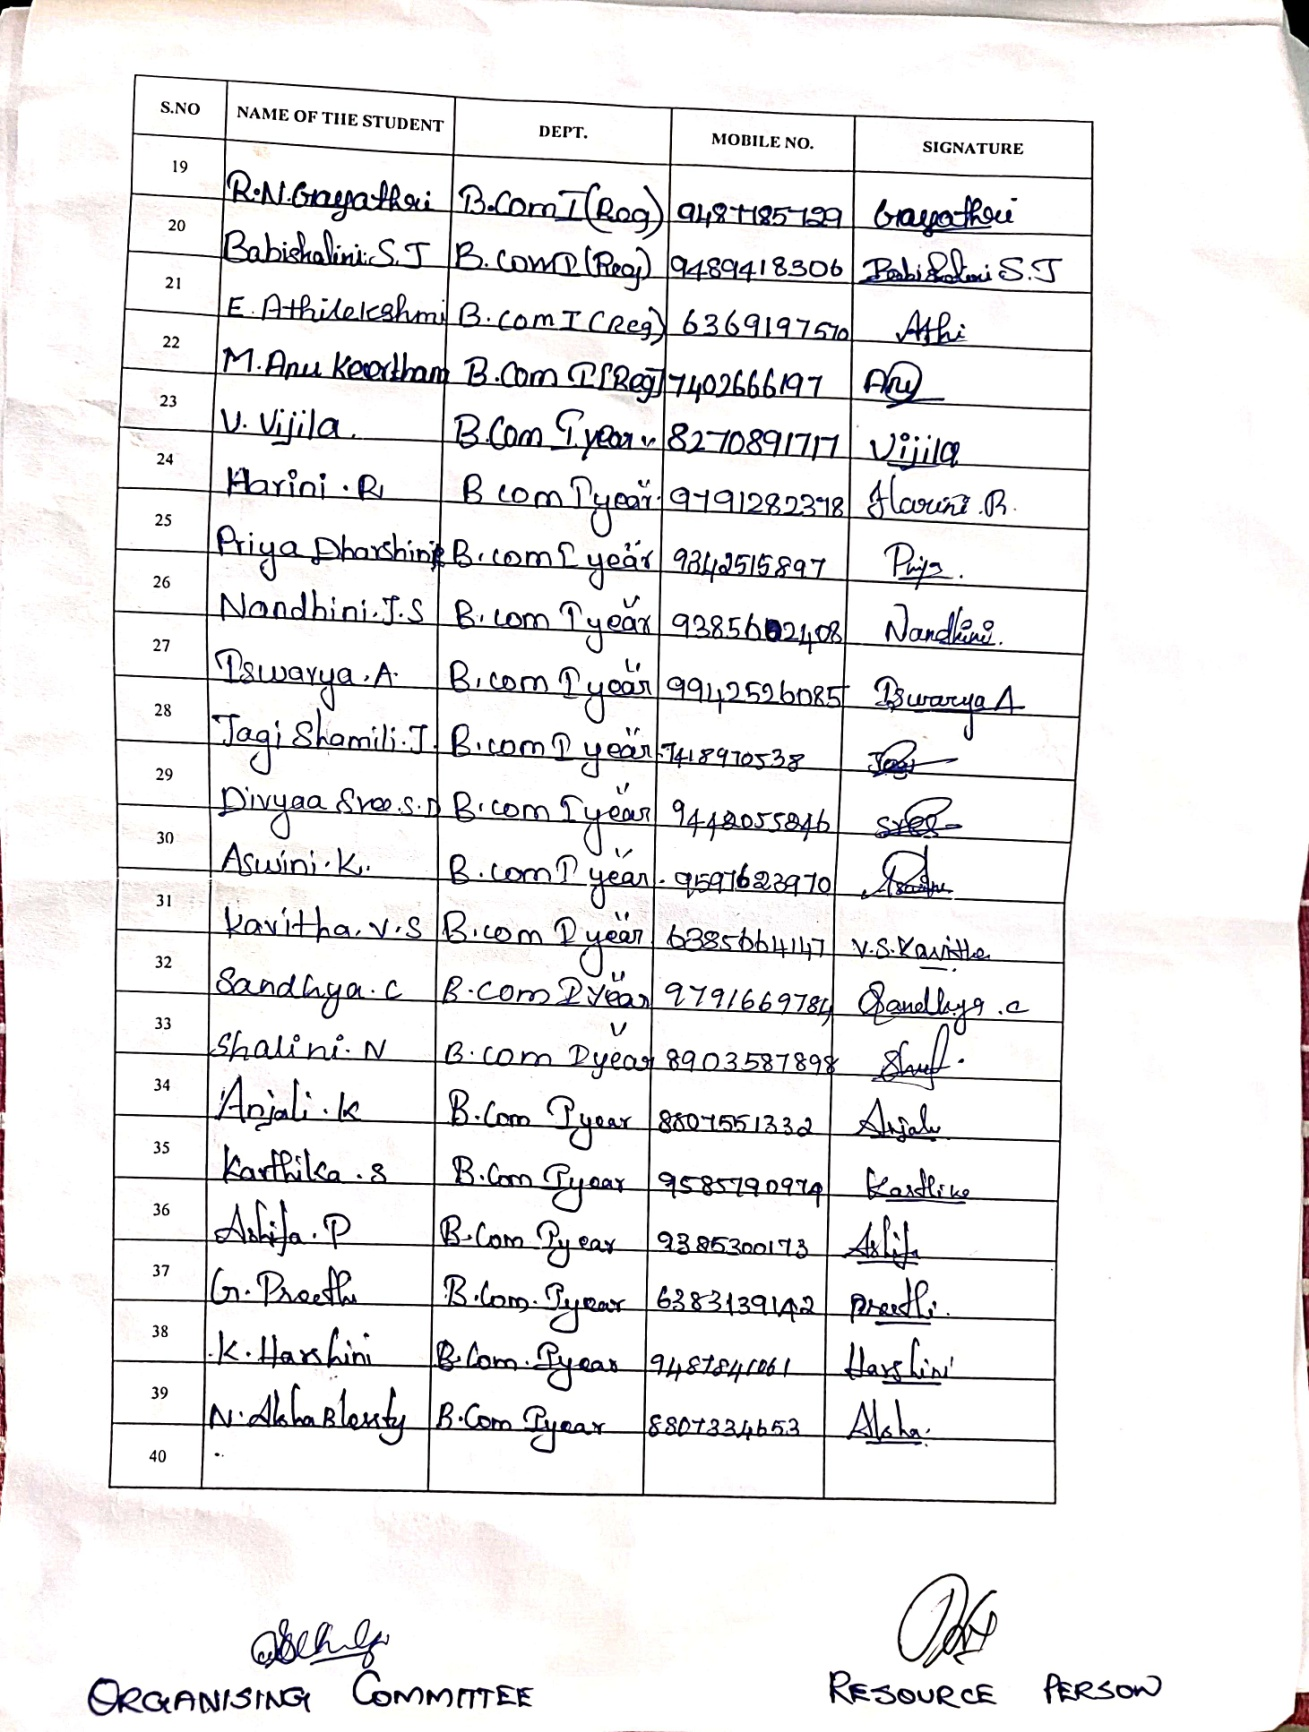 S.NO NAME OF THE STUDENT DEPT. MOBILE NO. SIGNATURE
19 R.N.Gayathri B.Com I (Reg) 9487185729 Gayathri
20 Babishalini.S.J B.Com I (Reg) 9489418306 Babishalini S.J
21 E. Athilekshmi B.com I (Reg) 6369197570 Athi
22 M. Anu Keertham B.Com I (Reg) 7402666197 Anu
23 V. Vijila. B.Com I year 8270891717 Vijila
24 Harini . R B com I year 9791282378 Harini .R.
25 Priya Dharshini B.com I year 9342515897 Priya.
26 Nandhini.J.S B.com I year 9385602408 Nandhini.
27 Iswarya.A. B.com I year 9942526085 Iswarya A
28 Jagi Shamili.J. B.com I year 7418970538 Jagi
29 Divyaa Sree.S.D B.com I year 9442055846 Sree
30 Aswini.K. B.com I year. 9597623970
31 Kavitha.V.S B.com I year 6385664147 V.S.Kavitha
32 Sandhya.C B.com I Year 9791669784 Sandhya.c
33 Shalini.N B.com I year 8903587898
34 Anjali.K B.Com I year 8807551332 Anjali
35 Karthika.S B.Com I year 9585790974 Karthika
36 Ashifa.P B.Com I year 9385300173 Ashifa
37 G. Preethi B.Com. I year 6383139142 Preethi.
38 K. Harshini B.Com. I year 9487841061 Harshini
39 N. Aksha Blessty B.Com I year 8807334653 Aksha.
40
ORGANISING COMMITTEE RESOURCE PERSON